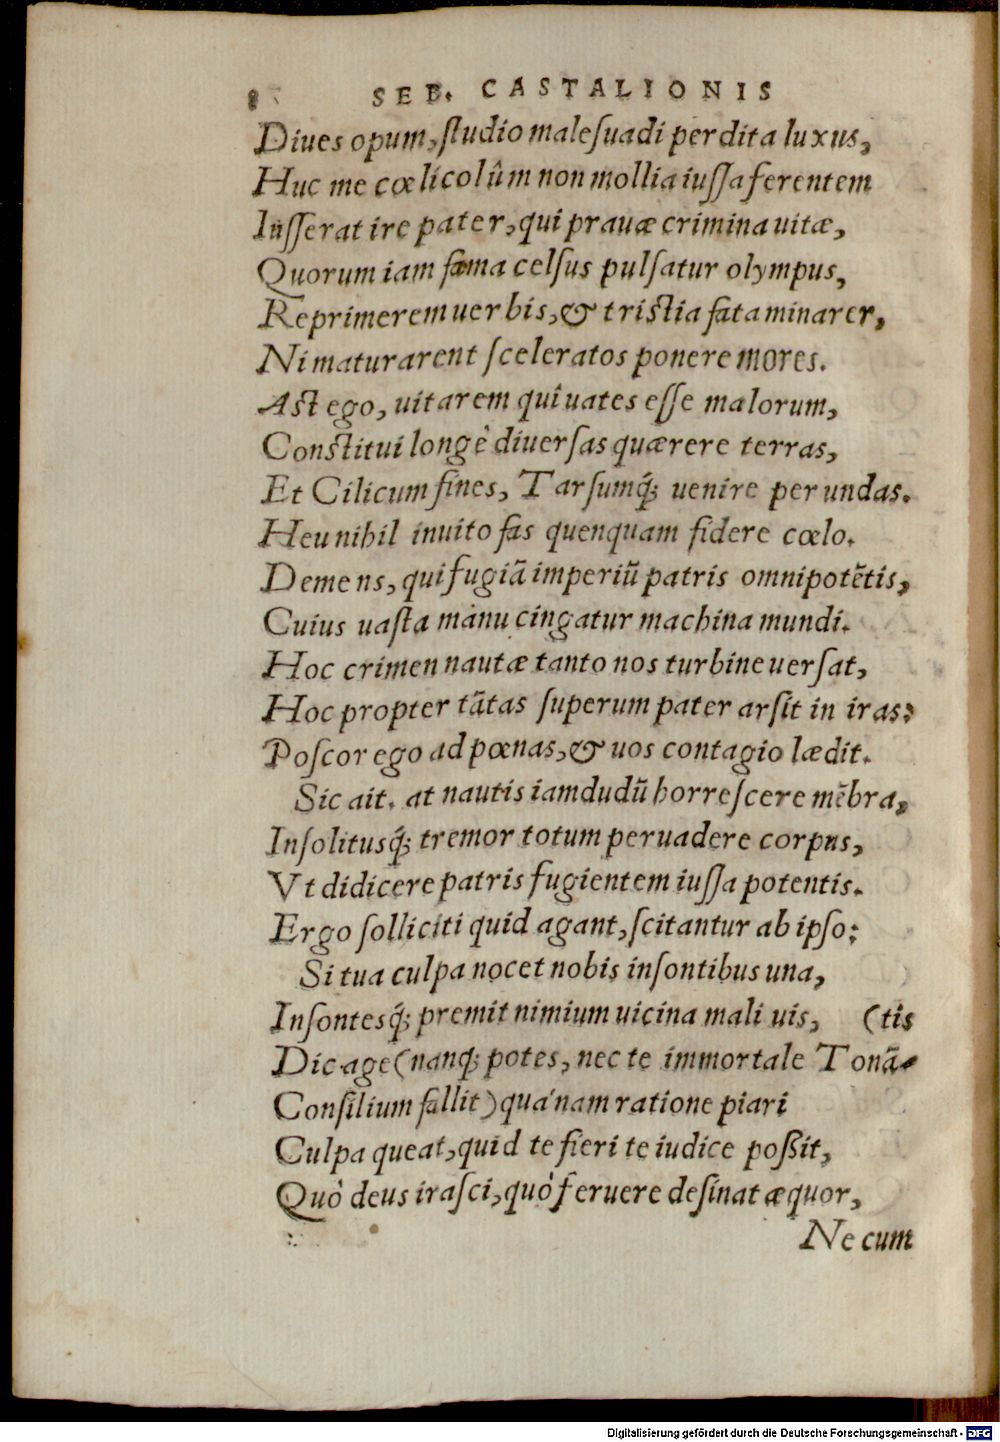 8 SEB. CASTALIONIS
Diues opum, ſtudio maleſuadi perdita luxus,
Huc me cœlicolûm non mollia iuſſa ferentem
Iuſſerat ire pater, qui prauæ crimina uitæ,
Quorum iam fama celſus pulſatur olympus,
Reprimerem uerbis, & triſtia fata minarer,
Ni maturarent ſceleratos ponere mores.
Aſt ego, uitarem quî uates eſſe malorum,
Conſtitui longè diuerſas quærere terras,
Et Cilicum fines, Tarſumq́; uenire per undas.
Heu nihil inuito fas quenquam fidere cœlo.
Demens, qui fugiã imperiũ patris omnipotẽtis,
Cuius uaſta manu cingatur machina mundi.
Hoc crimen nautæ tanto nos turbine uerſat,
Hoc propter tãtas ſuperum pater arſit in iras:
Poſcor ego ad pœnas, & uos contagio lædit.
Sic ait. at nautis iamdudũ horreſcere mẽbra,
Inſolitusq́; tremor totum peruadere corpus,
Vt didicere patris fugientem iuſſa potentis.
Ergo ſolliciti quid agant, ſcitantur ab ipſo:
Si tua culpa nocet nobis inſontibus una,
Inſontesq́; premit nimium uicina mali uis, (tis
Dic age (nanq; potes, nec te immortale Tonã-
Conſilium fallit) quánam ratione piari
Culpa queat, quid te fieri te iudice poßit,
Quò deus iraſci, quò feruere deſinat æquor,
Ne cum
Digitalisierung gefördert durch die Deutsche Forschungsgemeinschaft - DFG